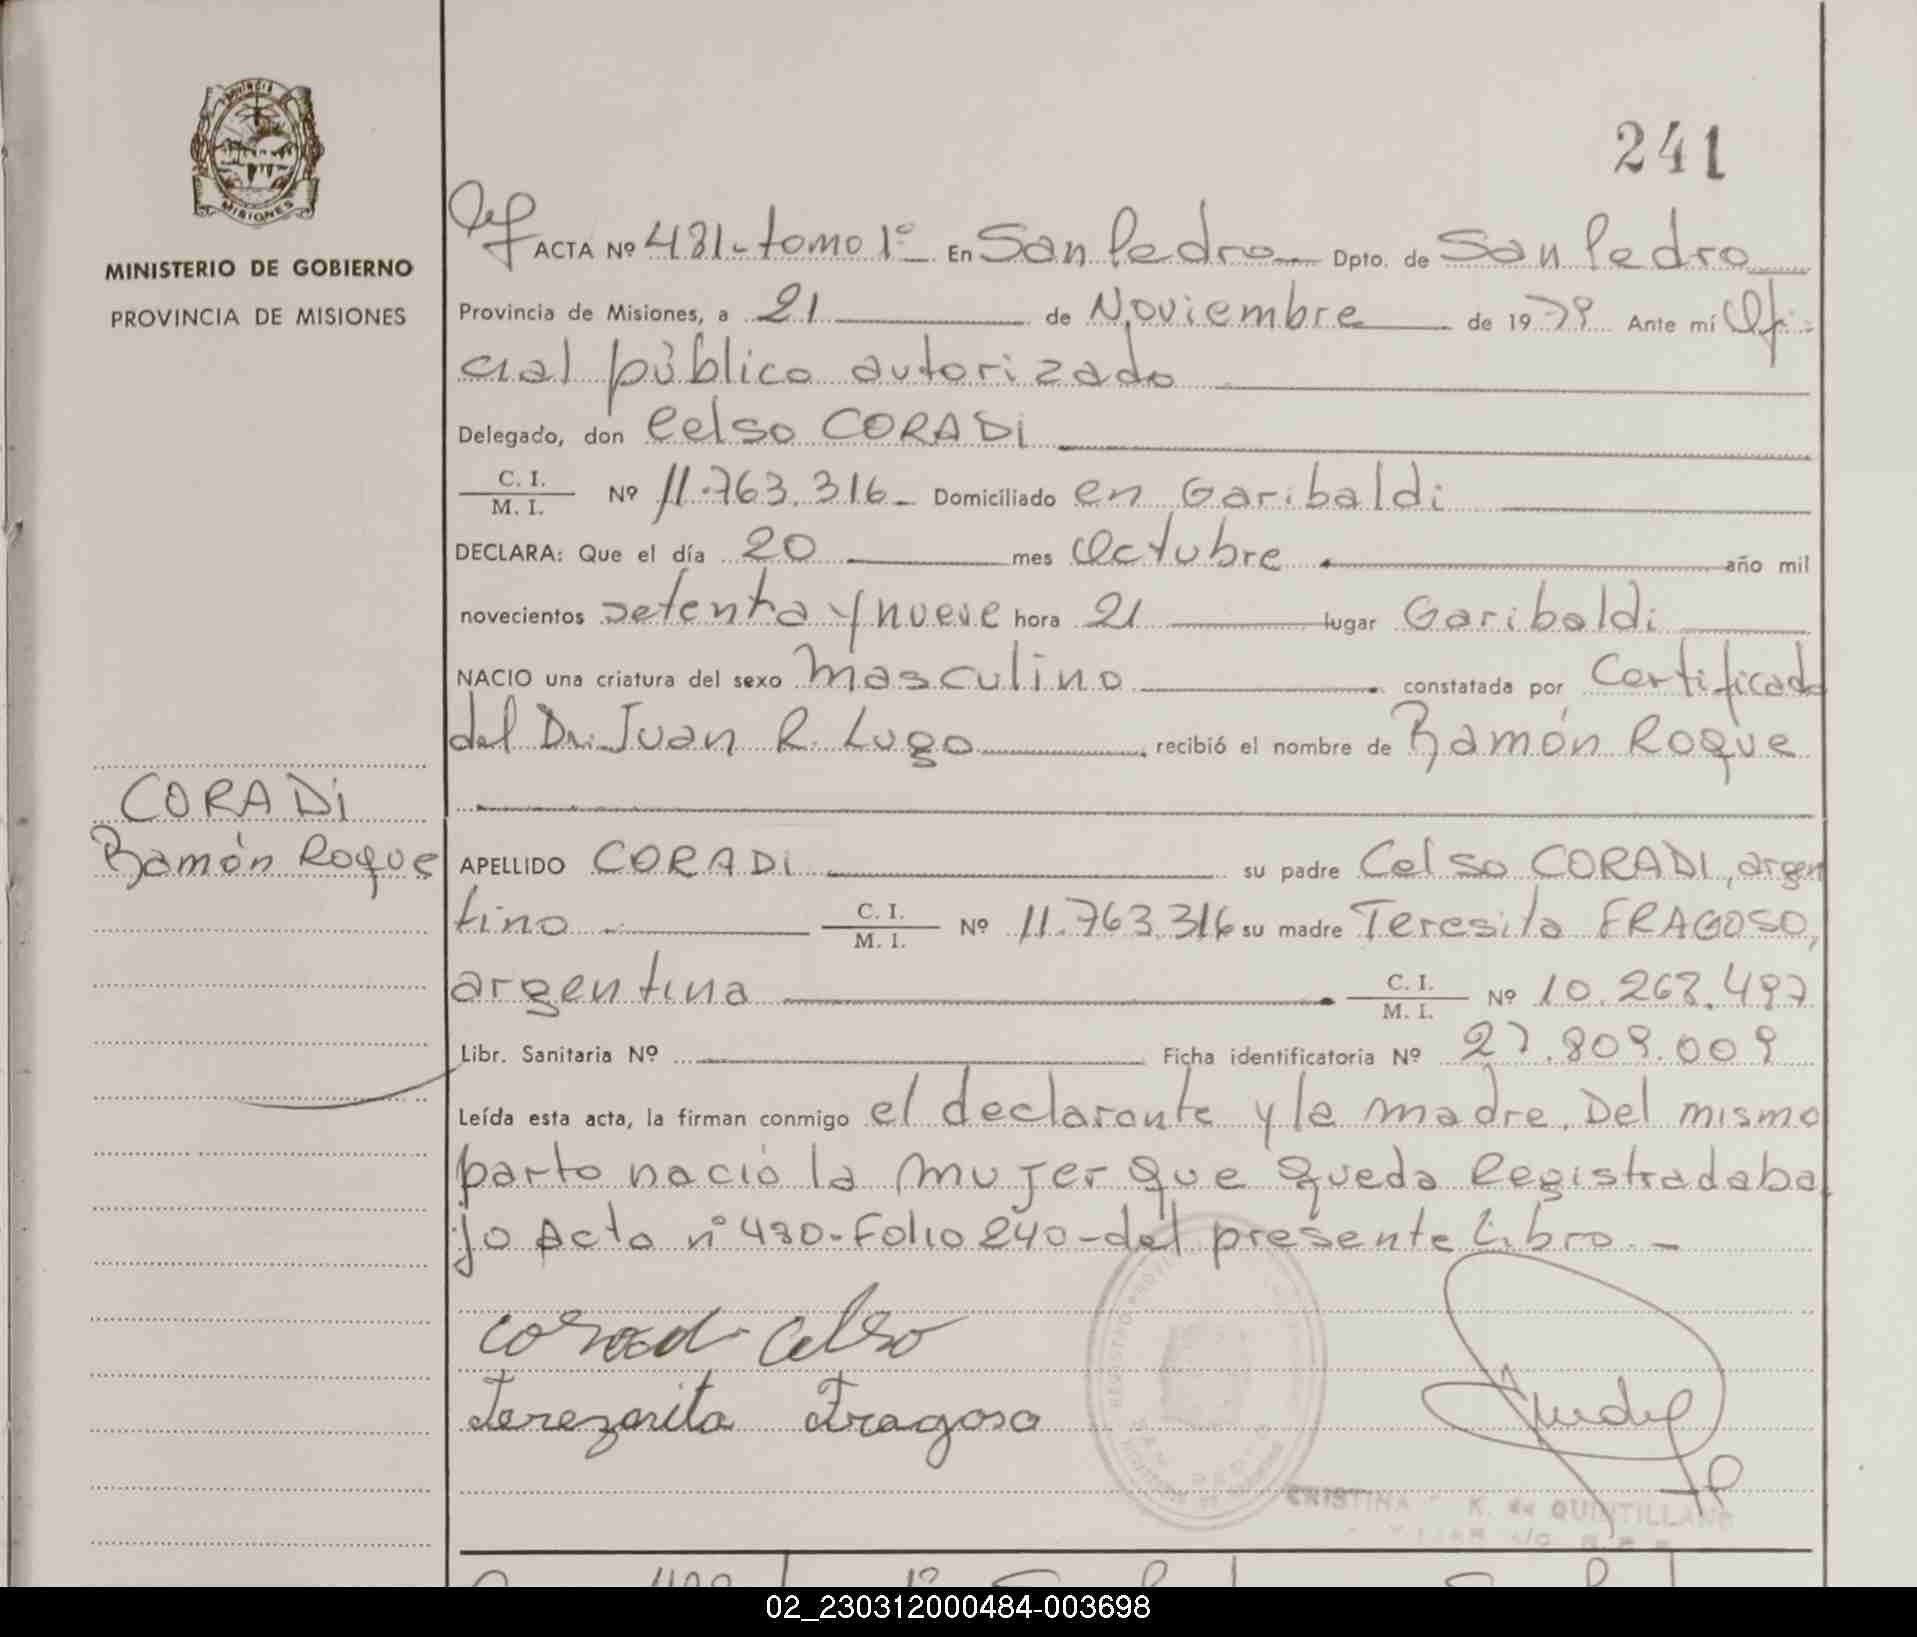 PROVINCIA
MISIONES
MINISTERIO DE GOBIERNO
PROVINCIA DE MISIONES
241
ACTA Nº 481-tomo 1º En San Pedro Dpto. de San Pedro
Provincia de Misiones, a 21 de Noviembre de 1979 Ante mí Ofi-
cial público autorizado
Delegado, don Celso CORADi
C. I.
M. I. Nº 11.763.316 Domiciliado en Garibaldi
DECLARA: Que el día 20 mes Octubre año mil
novecientos setenta y nueve hora 21 lugar Garibaldi
NACIO una criatura del sexo masculino constatada por Certificado
del Dr. Juan R. Lugo recibió el nombre de Ramón Roque
CORADi
Ramón Roque
APELLIDO CORADi su padre Celso CORADI, argen
tino C. I.
M. I. Nº 11.763.316 su madre Teresita FRAGOSO,
argentina C. I.
M. I. Nº 10.268.497
Libr. Sanitaria Nº Ficha identificatoria Nº 27.809.009
Leída esta acta, la firman conmigo el declarante y la madre. Del mismo
parto nació la mujer que queda Registrada ba
jo Acta nº 480-Folio 240-del presente Libro.-
Coradi Celso
Terezarita Fragoso
CRISTINA K. de QUINTILLANO
02_230312000484-003698